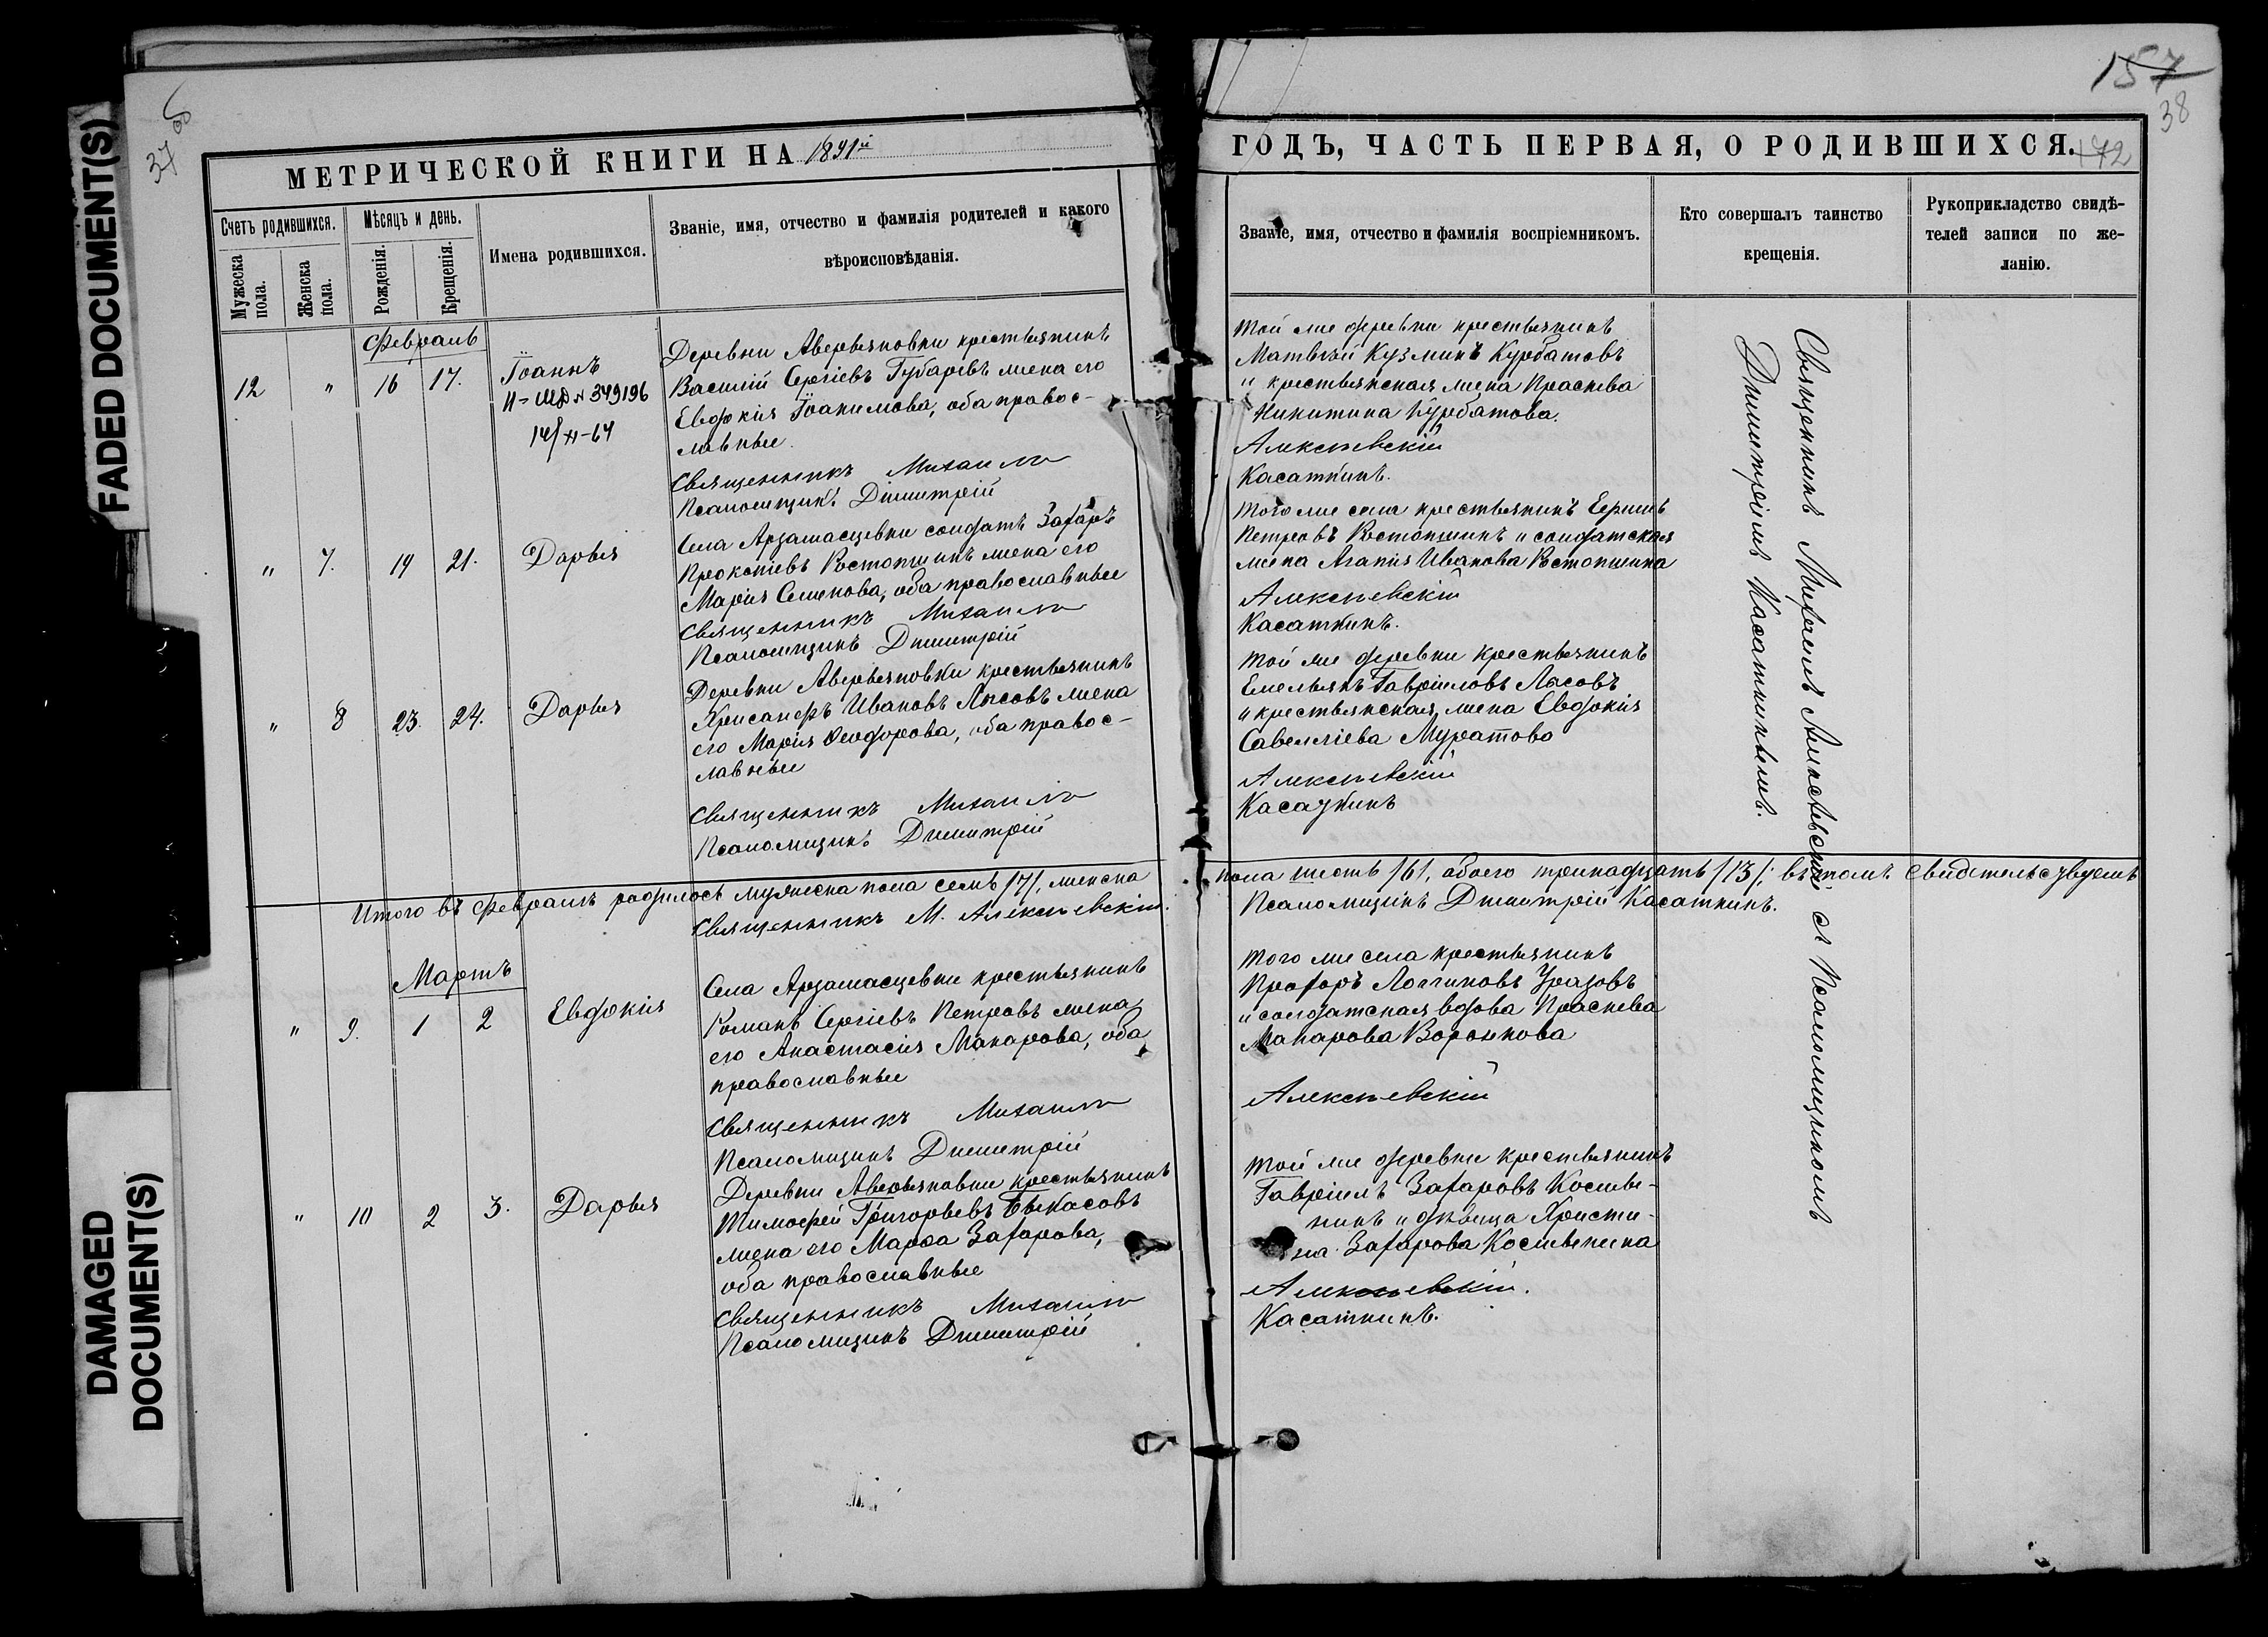 FADED DOCUMENT(S)
DAMAGED
DOCUMENT(S)
37 об
МЕТРИЧЕСКОЙ КНИГИ НА 1891й
Счетъ родившихся.
Мужеска пола.
Женска пола.
Мѣсяцъ и день.
Рожденія.
Крещенія.
Имена родившихся.
Званіе, имя, отчество и фамилія родителей и какого
вѣроисповѣданія.
Февраль
12 " 16 17. Іоаннъ
349196
14/XI-64
Деревни Аверьяновки крестьянинъ
Василій Сергіевъ Губаревъ жена его
Евдокія Іоакимова, оба правос-
лавные.
Священникъ Михаилъ
Псаломщикъ Димитрій
" 7. 19 21. Дарья
Села Арзамасцевки солдатъ Захаръ
Прокопіевъ Востопшинъ жена его
Марія Семенова, оба православные
Священникъ Михаилъ
Псаломщикъ Димитрій
" 8 23. 24. Дарья
Деревни Аверьяновки крестьянинъ
Хрисанфъ Ивановъ Лысовъ жена
его Марія Ѳеодорова, оба правос-
лавные
Священникъ Михаилъ
Псаломщикъ Димитрій
Итого въ Февралѣ родилось мужеска пола семь /7/, женска
Священникъ М. Алексѣевскій.
Мартъ
" 9. 1 2 Евдокія
Села Арзамасцевки крестьянинъ
Романъ Сергіевъ Петровъ жена
его Анастасія Макарова, оба
православные
Священникъ Михаилъ
Псаломщикъ Димитрій
" 10 2 3. Дарья
Деревни Аверьяновки крестьянинъ
Тимофей Григорьевъ Быкасовъ
жена его Марѳа Захарова,
оба православные
Священникъ Михаилъ
Псаломщикъ Димитрій
157
38
172
ГОДЪ, ЧАСТЬ ПЕРВАЯ, О РОДИВШИХСЯ.
Званіе, имя, отчество и фамилія воспріемникомъ.
Кто совершалъ таинство
крещенія.
Рукоприкладство свидѣ-
телей записи по же-
ланію.
Той же деревни крестьянинъ
Матвѣй Кузминъ Курбатовъ
и крестьянская жена Праскева
Никитина Курбатова.
Алексѣевскій
Касаткинъ.
Того же села крестьянинъ
Петровъ Востопшинъ и солдатская
жена Агапія Иванова Востопшина
Алексѣевскій
Касаткинъ.
Той же деревни крестьянинъ
Емельянъ Гавріиловъ Лысовъ
и крестьянская жена Евдокія
Савелліева Муратова
Алексѣевскій
Касаткинъ
пола шесть /6/, обоего тринадцать /13/; въ томъ свидѣтельствуемъ
Псаломщикъ Димитрій Касаткинъ.
Того же села крестьянинъ
Прохоръ Логгиновъ Уразовъ
и солдатская вдова Праскева
Макарова Воронкова
Алексѣевскій
Той же деревни крестьянинъ
Гавріилъ Захаровъ Косты-
нинъ и дѣвица Христи-
на Захарова
Алексѣевскій.
Касаткинъ.
Священникъ Михаилъ Алексѣевскій съ Псаломщикомъ
Димитріемъ Касаткинымъ.